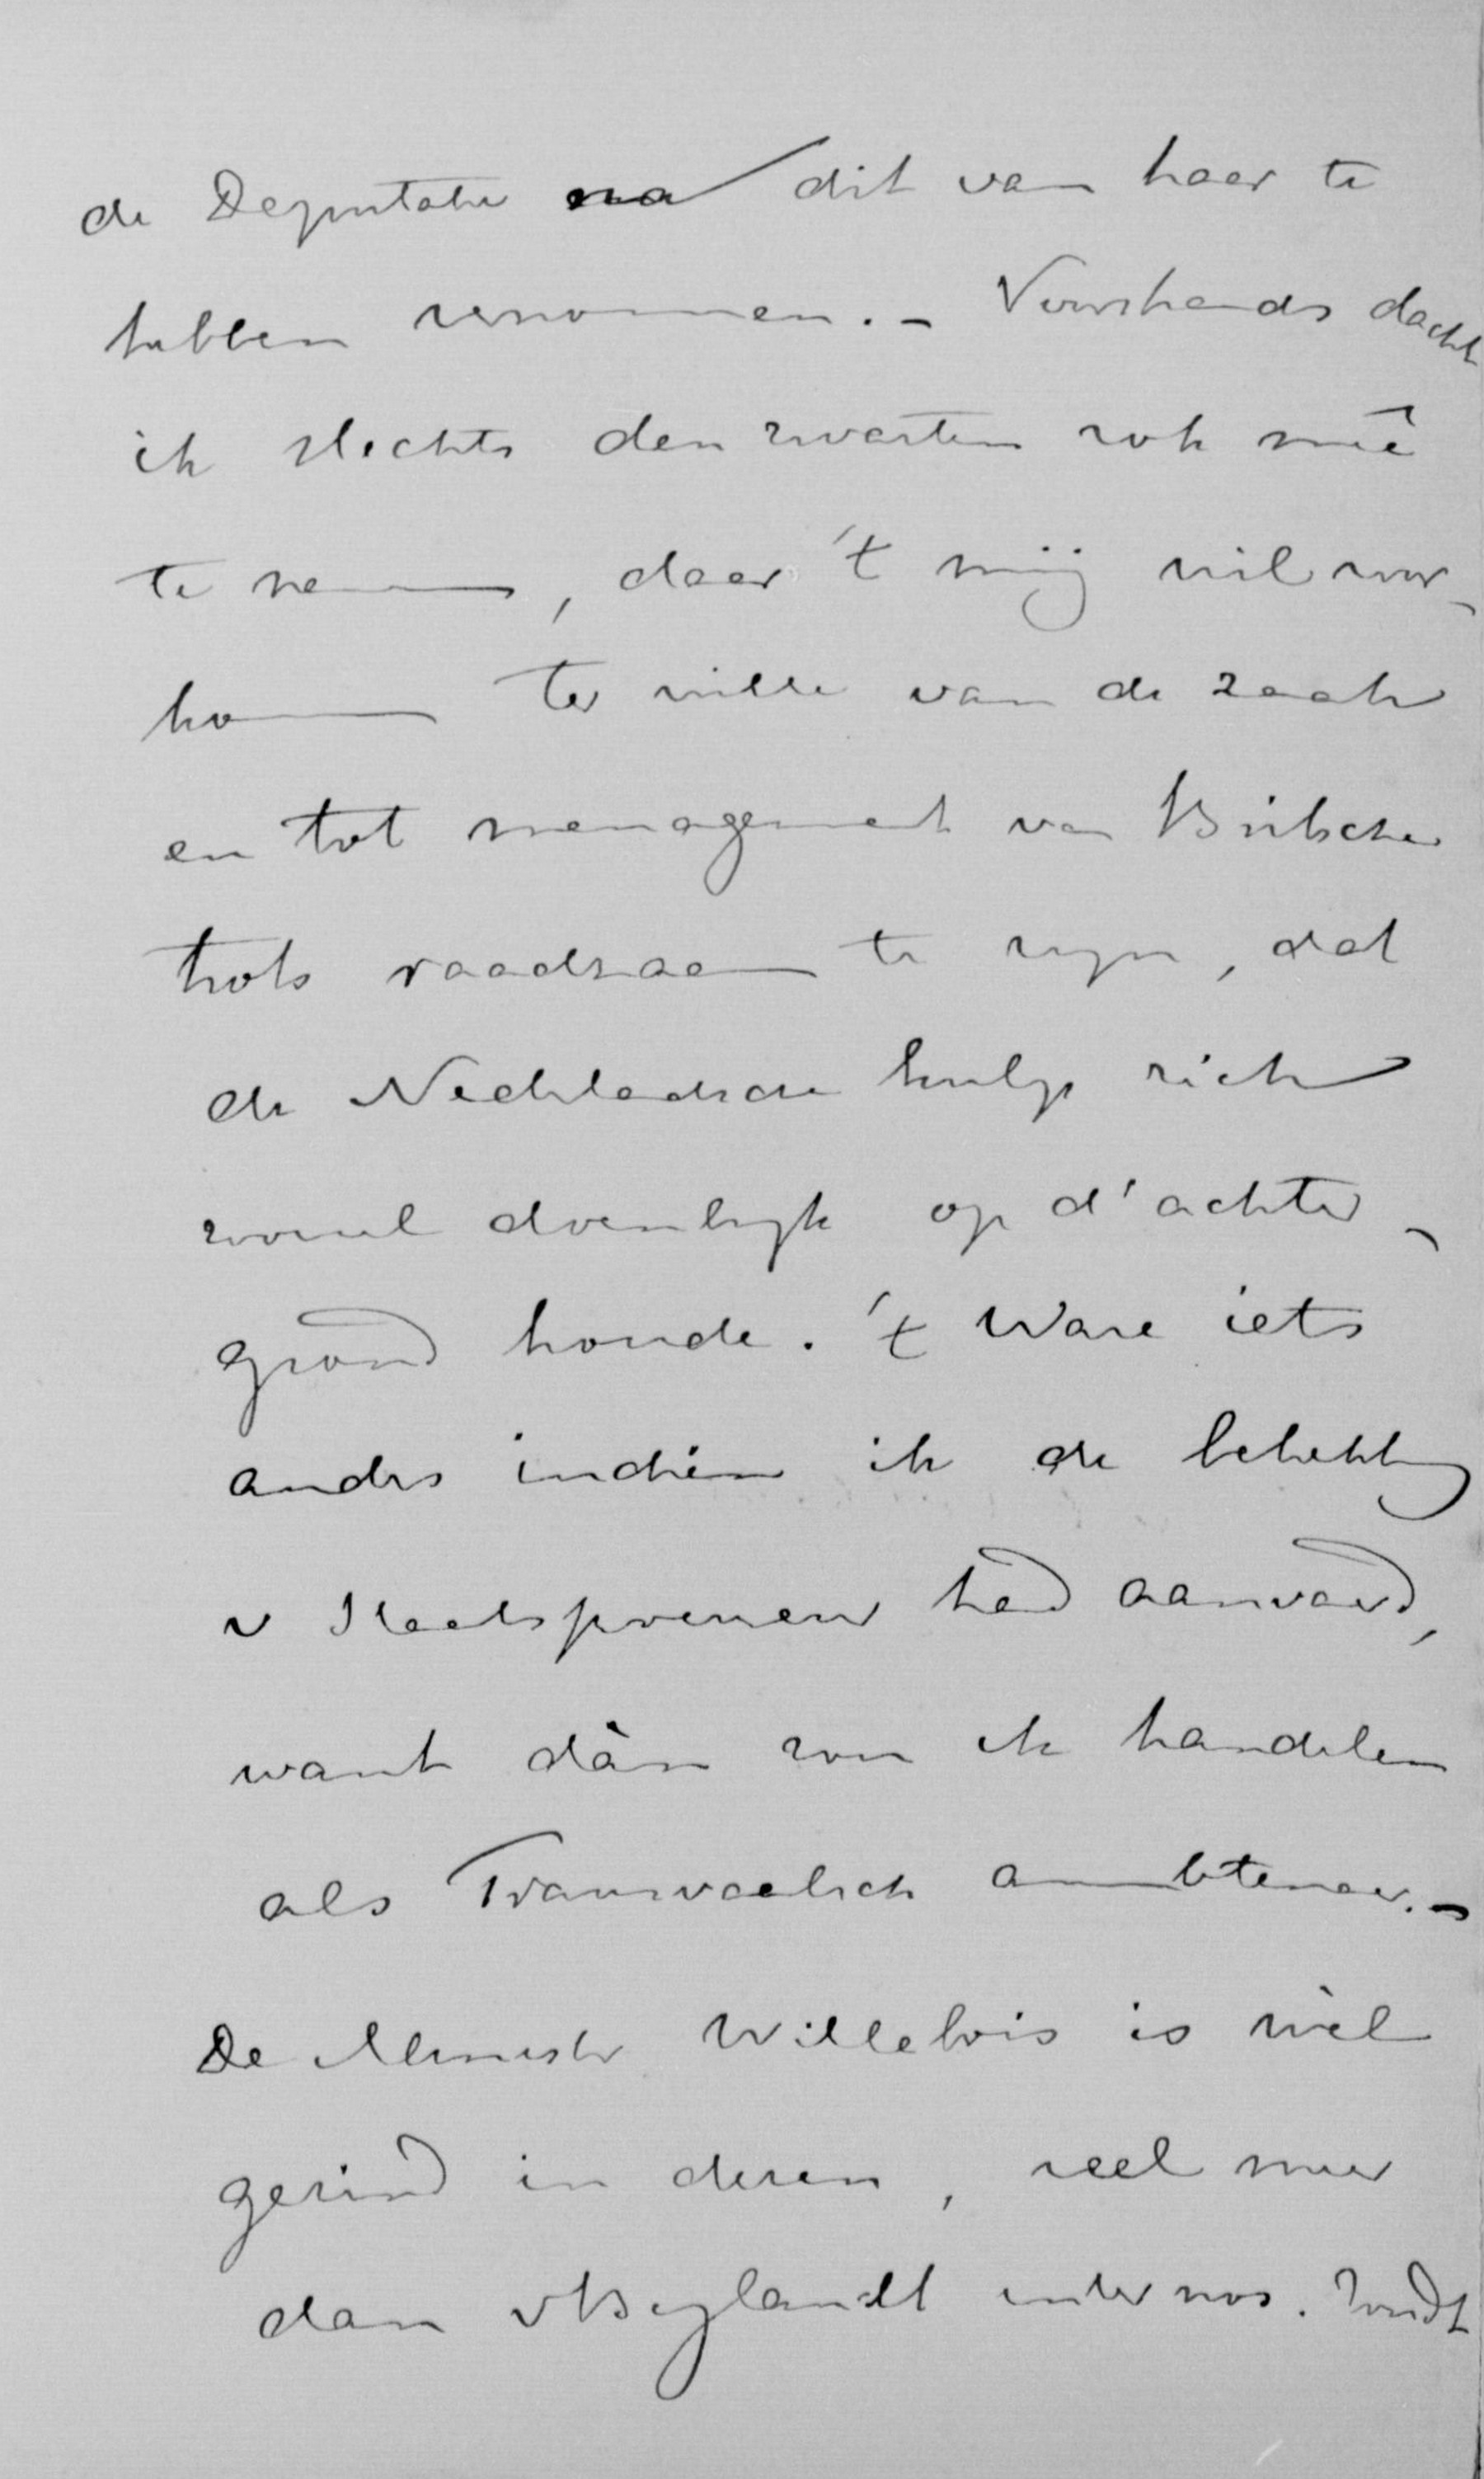 de Deputatie na dit van haar te
hebben vernomen. – Voorshands dacht
ik slechts den zwarten rok meê
te nemen, daar 't mij wil voor-
komen ter wille van de zaak
en tot menagement van Britschen
trots raadzaam te zijn, dat
de Nederlandsche hulp zich
zooveel doenlijk op d'achter-
grond houde. 't Ware iets
anders indien ik de betrekking
v Staatsprocureur had aanvaard,
want dàn zou ik handelen
als Transvaalsch ambtenaar. –
De Minister Willebois is wèl
gezind in dezen, veel meer
dan v Bylandt inter nos. Zendt